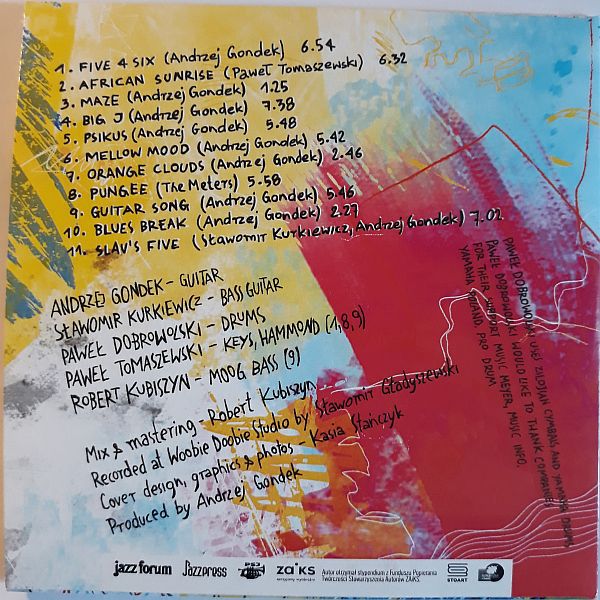 1. FIVE 4 SIX (Andrzej Gondek) 6.54
2. AFRICAN SUNRISE (Paweł Tomaszewski) 6.32
3. MAZE (Andrzej Gondek) 1.25
4. BIG J (Andrzej Gondek) 7.38
5. PSIKUS (Andrzej Gondek) 5.48
6. MELLOW MOOD (Andrzej Gondek) 5.42
7. ORANGE CLOUDS (Andrzej Gondek) 2.46
8. PUNGEE (The Meters) 5.58
9. GUITAR SONG (Andrzej Gondek) 5.46
10. BLUES BREAK (Andrzej Gondek) 2.27
11. SLAV'S FIVE (Sławomir Kurkiewicz, Andrzej Gondek) 7.02
ANDRZEJ GONDEK - GUITAR
SŁAWOMIR KURKIEWICZ - BASS GUITAR
PAWEŁ DOBROWOLSKI - DRUMS
PAWEŁ TOMASZEWSKI - KEYS, HAMMOND (1,8,9)
ROBERT KUBISZYN - MOOG BASS (9)
Mix & mastering - Robert Kubiszyn
Recorded at Woobie Doobie Studio by Sławomir Głodyszewski
Cover design, graphics & photos - Kasia Stańczyk
Produced by Andrzej Gondek
PAWEŁ DOBROWOLSKI USES ZILDJIAN CYMBALS AND YAMAHA DRUMS
PAWEŁ DOBROWOLSKI WOULD LIKE TO THANK COMPANIES
FOR THEIR SUPPORT MUSIC MEYER, MUSIC INFO,
YAMAHA POLAND, PRO DRUM
jazzforum
Jazzpress
PSJ
ZAiKS
Autor otrzymał stypendium z Funduszu Popierania
Twórczości Stowarzyszenia Autorów ZAiKS.
STOART